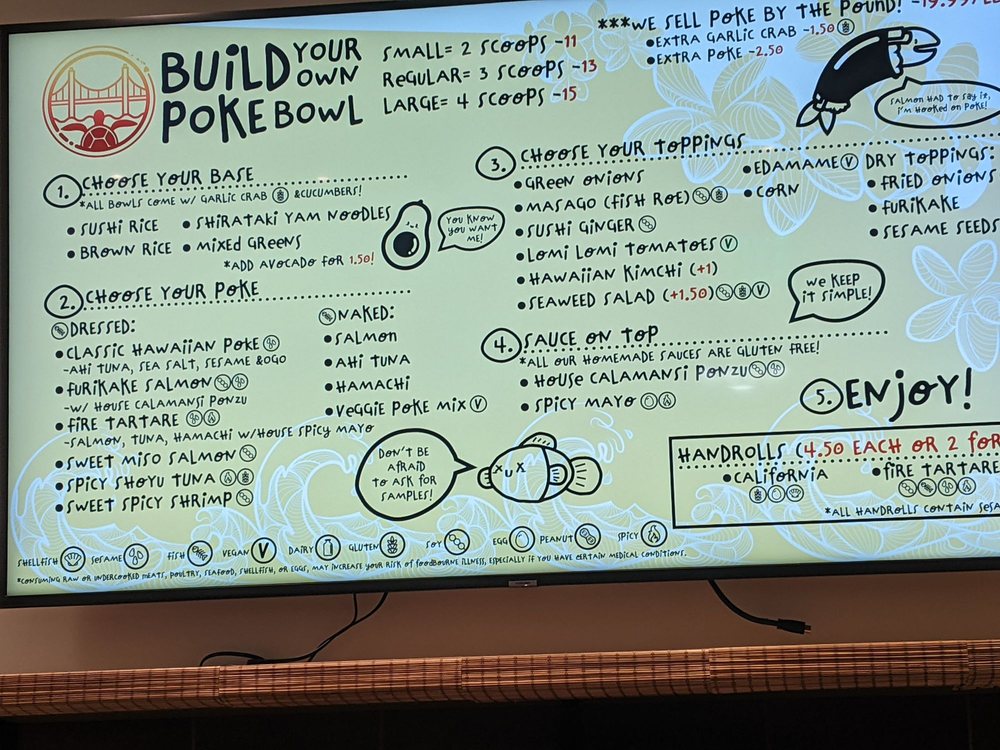 BUILD YOUR OWN POKE BOWL
SMALL= 2 SCOOPS -11
REGULAR= 3 SCOOPS -13
LARGE= 4 SCOOPS -15
***WE SELL POKE BY THE POUND! -19.99/
•EXTRA GARLIC CRAB -1.50
•EXTRA POKE -2.50
SALMON HAD TO SAY IT,
I'M HOOKED ON POKE!
1. CHOOSE YOUR BASE
*ALL BOWLS COME W/ GARLIC CRAB &CUCUMBERS!
• SUSHI RICE
• BROWN RICE
• SHIRATAKI YAM NOODLES
• MIXED GREENS
*ADD AVOCADO FOR 1.50!
YOU KNOW
YOU WANT
ME!
2. CHOOSE YOUR POKE
DRESSED:
•CLASSIC HAWAIIAN POKE
-AHI TUNA, SEA SALT, SESAME &OGO
•FURIKAKE SALMON
-W/ HOUSE CALAMANSI PONZU
•FIRE TARTARE
-SALMON, TUNA, HAMACHI W/HOUSE SPICY MAYO
•SWEET MISO SALMON
•SPICY SHOYU TUNA
•SWEET SPICY SHRIMP
NAKED:
•SALMON
•AHI TUNA
•HAMACHI
•VEGGIE POKE MIX V
DON'T BE
AFRAID
TO ASK FOR
SAMPLES!
3. CHOOSE YOUR TOPPINGS
•GREEN ONIONS
•MASAGO (FISH ROE)
•SUSHI GINGER
•LOMI LOMI TOMATOES V
•HAWAIIAN KIMCHI (+1)
•SEAWEED SALAD (+1.50) V
•EDAMAME V
•CORN
DRY TOPPINGS:
•FRIED ONIONS
•FURIKAKE
•SESAME SEEDS
WE KEEP
IT SIMPLE!
4. SAUCE ON TOP
*ALL OUR HOMEMADE SAUCES ARE GLUTEN FREE!
• HOUSE CALAMANSI PONZU
• SPICY MAYO
5. ENJOY!
HANDROLLS (4.50 EACH OR 2 FOR
•CALIFORNIA
•FIRE TARTARE
*ALL HANDROLLS CONTAIN
SHELLFISH SESAME FISH VEGAN V DAIRY GLUTEN SOY EGG PEANUT SPICY
*CONSUMING RAW OR UNDERCOOKED MEATS, POULTRY, SEAFOOD, SHELLFISH, OR EGGS, MAY INCREASE YOUR RISK OF FOODBOURNE ILLNESS, ESPECIALLY IF YOU HAVE CERTAIN MEDICAL CONDITIONS.